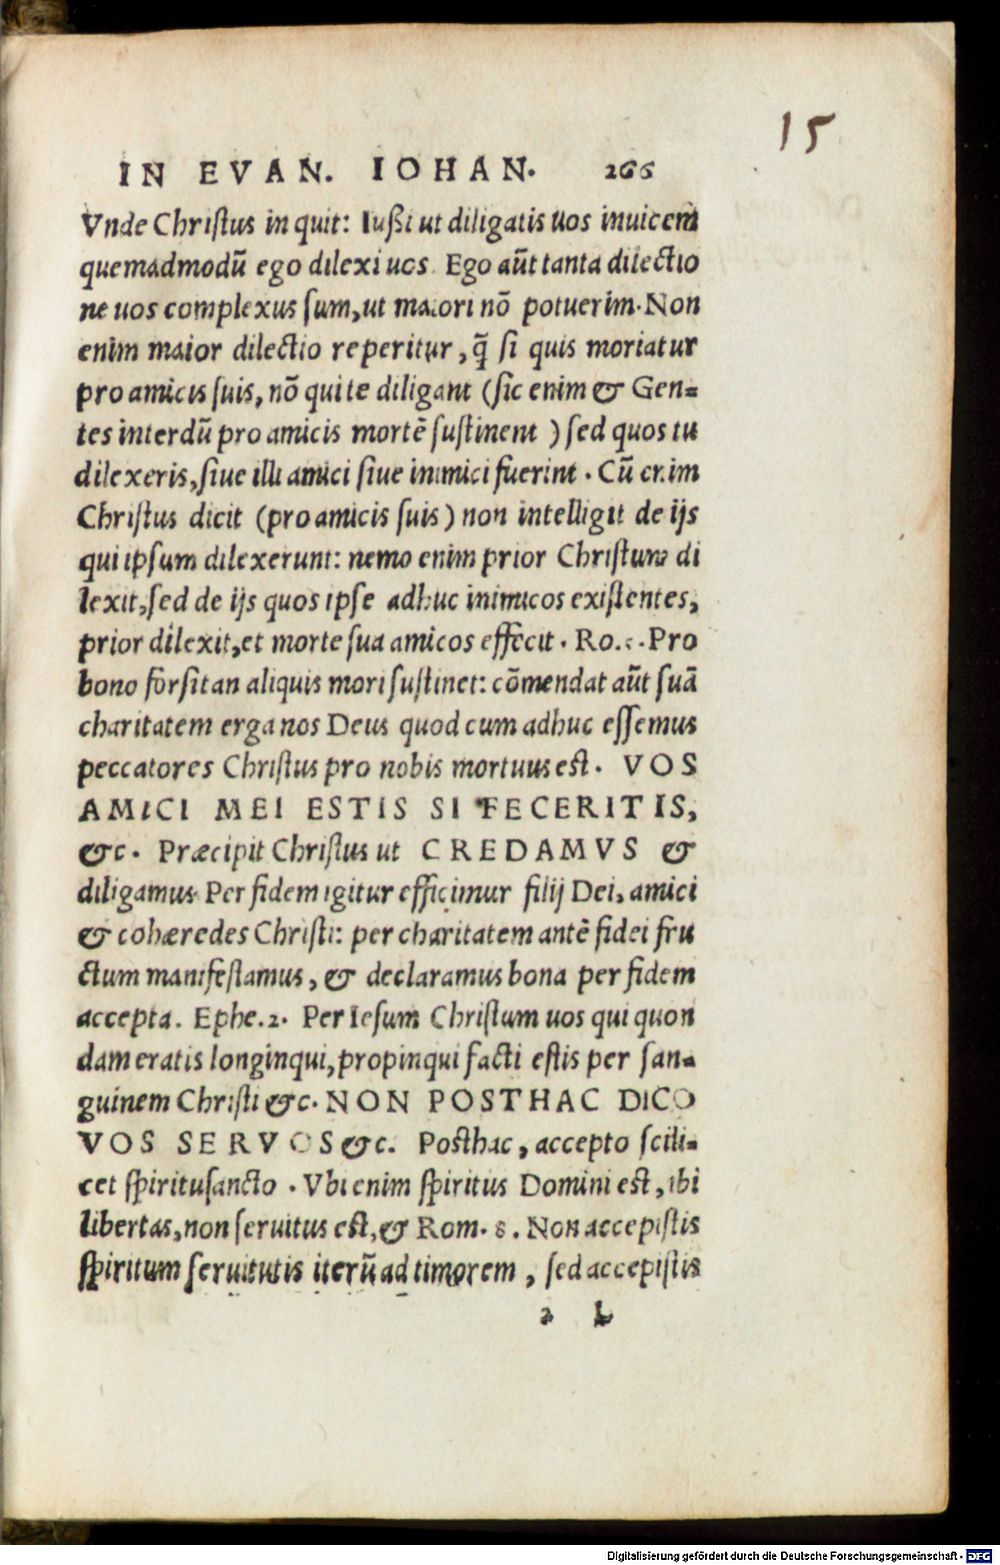 15
IN EVAN. IOHAN. 266
Vnde Christus inquit: Iußi ut diligatis uos inuicem
quemadmodũ ego dilexi uos. Ego aũt tanta dilectio
ne uos complexus sum, ut maiori nõ potuerim. Non
enim maior dilectio reperitur, q̃ si quis moriatur
pro amicis suis, nõ qui te diligant (sic enim & Gen-
tes interdũ pro amicis mortẽ sustinent) sed quos tu
dilexeris, siue illi amici siue inimici fuerint. Cũ enim
Christus dicit (pro amicis suis) non intelligit de ijs
qui ipsum dilexerunt: nemo enim prior Christum di
lexit, sed de ijs quos ipse adhuc inimicos existentes,
prior dilexit, et morte sua amicos effecit. Ro. . Pro
bono forsitan aliquis mori sustinet: cõmendat aũt suã
charitatem erga nos Deus quod cum adhuc essemus
peccatores Christus pro nobis mortuus est. VOS
AMICI MEI ESTIS SI FECERITIS,
&c. Præcipit Christus ut CREDAMVS &
diligamus. Per fidem igitur efficimur filij Dei, amici
& cohæredes Christi: per charitatem autẽ fidei fru
ctum manifestamus, & declaramus bona per fidem
accepta. Ephe. 2. Per Iesum Christum uos qui quon
dam eratis longinqui, propinqui facti estis per san-
guinem Christi &c. NON POSTHAC DICO
VOS SERVOS &c. Posthac, accepto scili-
cet spiritusancto. Vbi enim spiritus Domini est, ibi
libertas, non seruitus est, & Rom. 8. Non accepistis
spiritum seruitutis iterũ ad timorem, sed accepistis
2 L
Digitalisierung gefördert durch die Deutsche Forschungsgemeinschaft - DFG